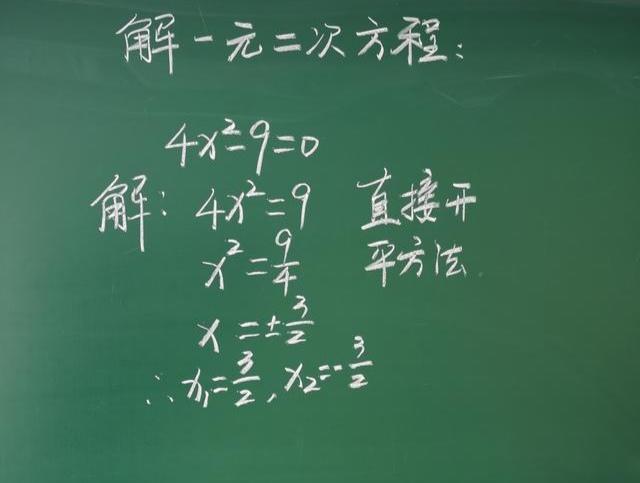 解一元二次方程:
4x²-9=0
解: 4x²=9 直接开
x²=9/4 平方法.
x=±3/2
∴x₁=3/2, x₂=-3/2